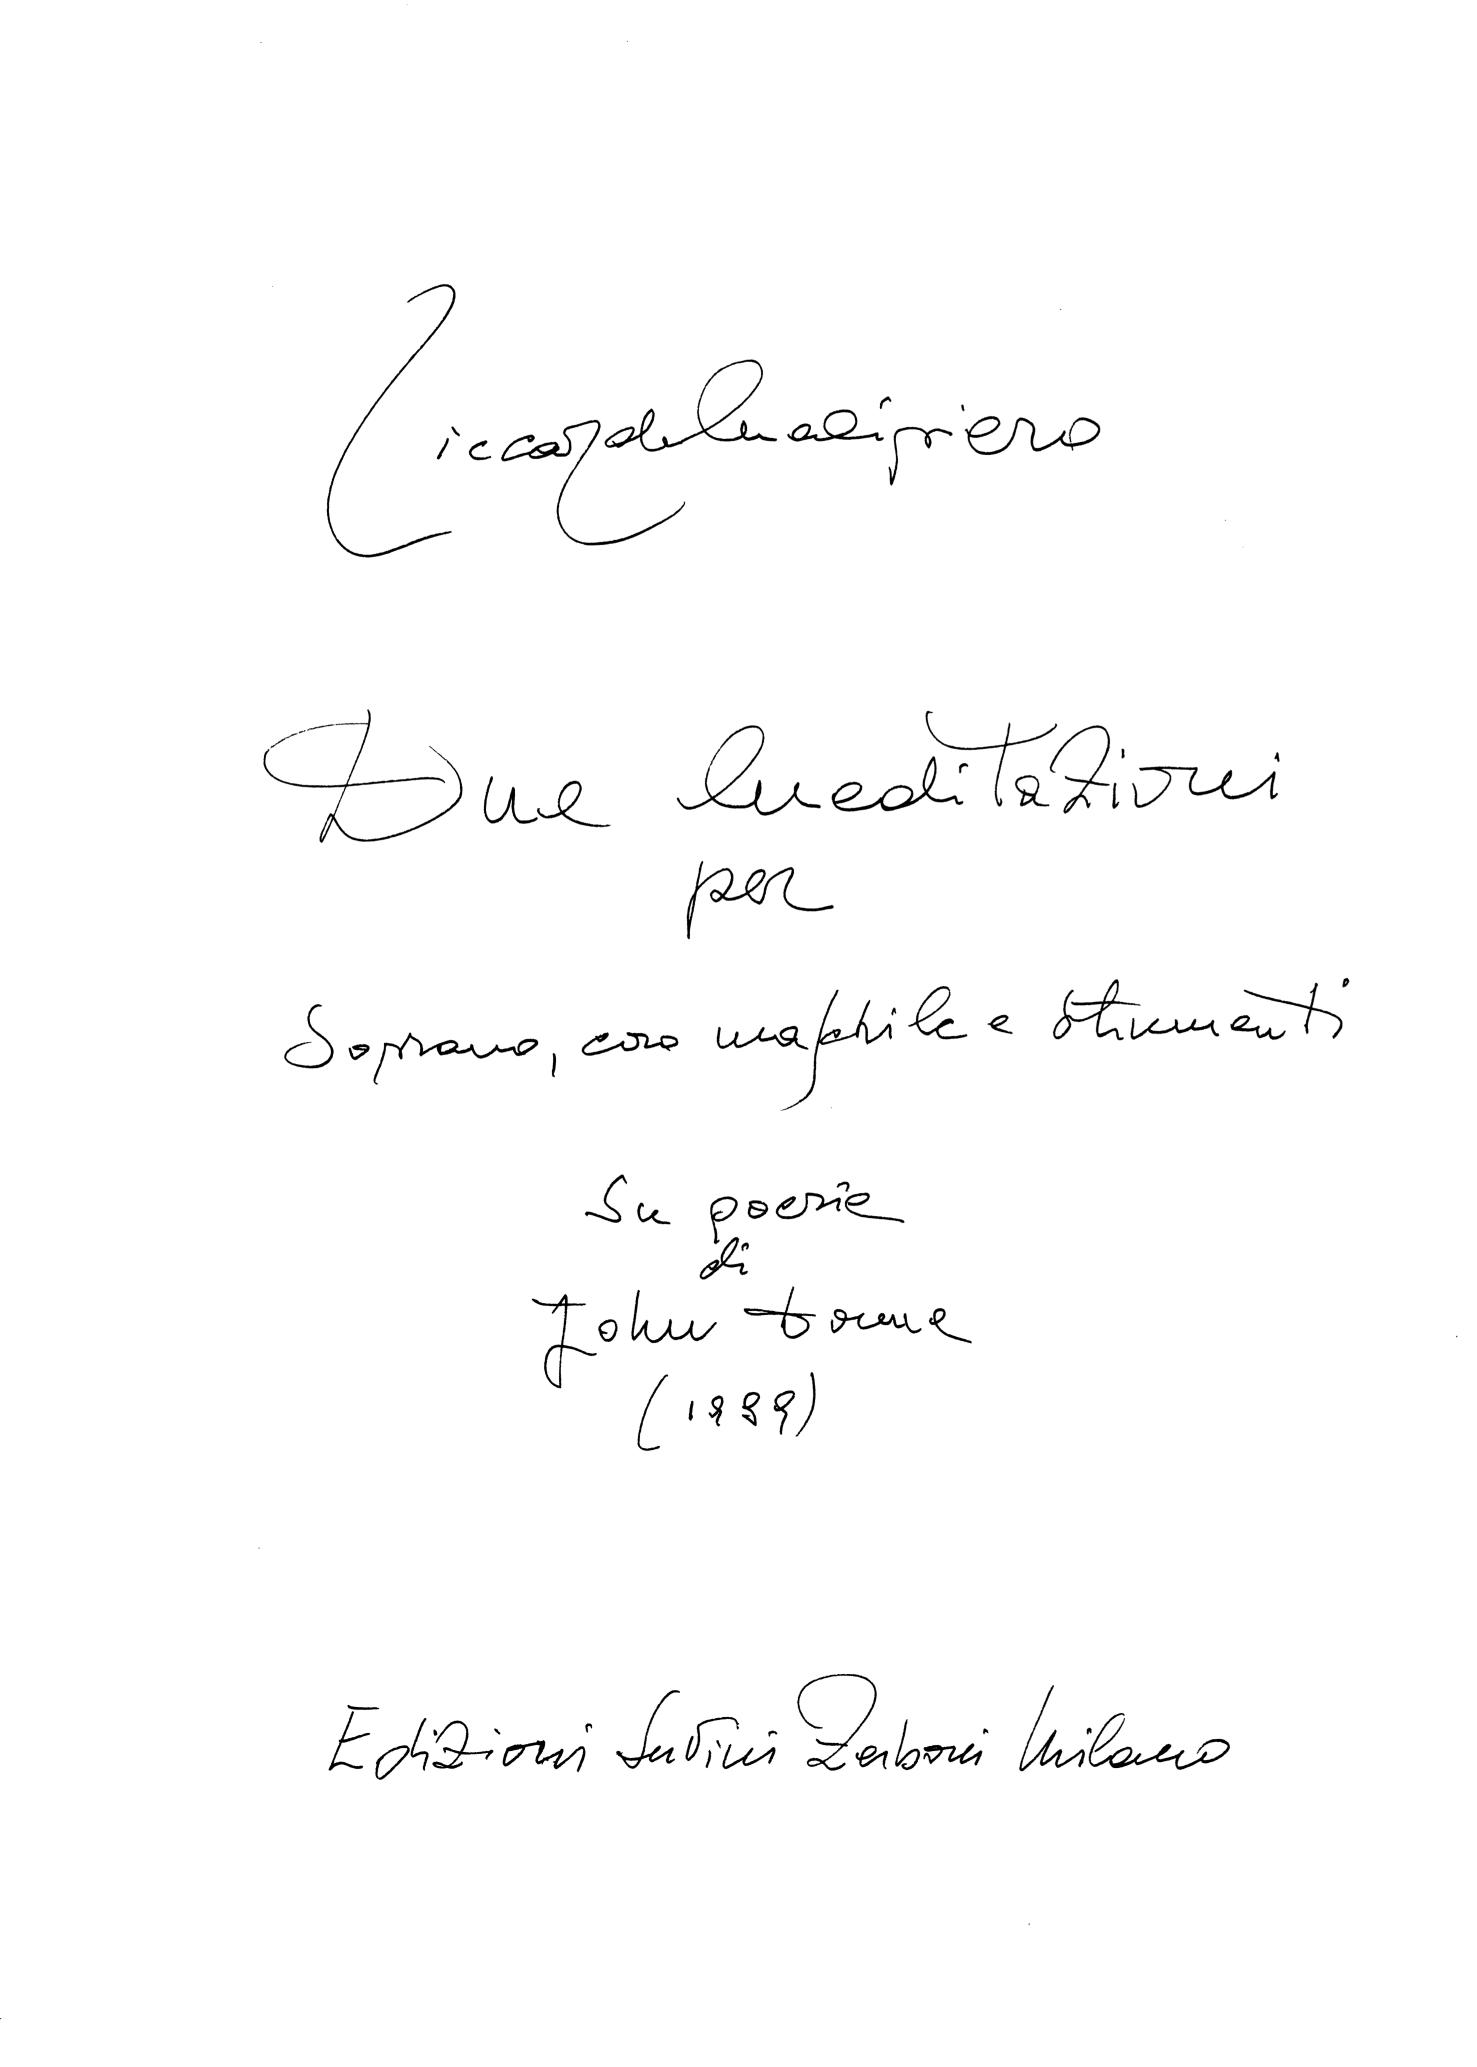 Riccardo Malipiero
Due Meditazioni
per
Soprano, coro maschile e strumenti
su poesie
di
John Donne
(1999)
Edizioni Suvini Zerboni Milano